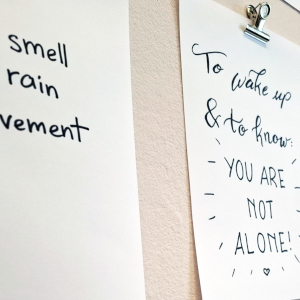 smell
rain
vement
To wake up
& to know:
YOU ARE
NOT
ALONE!